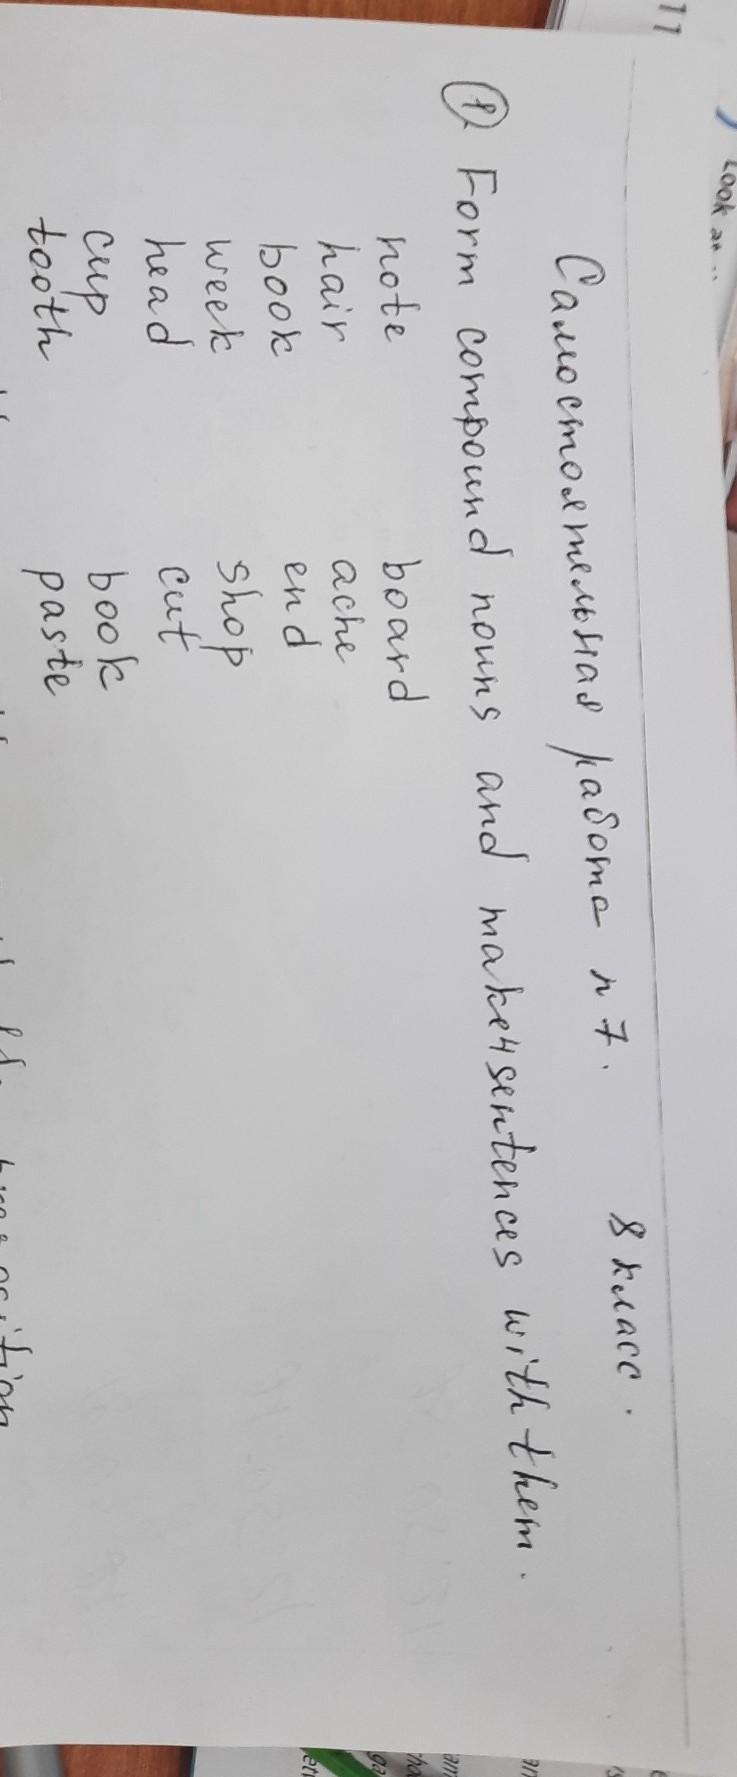 11
Look at..
Самостоятельная работа n 7. 8 класс.
① Form compound nouns and make 4 sentences with them.
note board
hair ache
book end
week shop
head cut
cup book
tooth paste